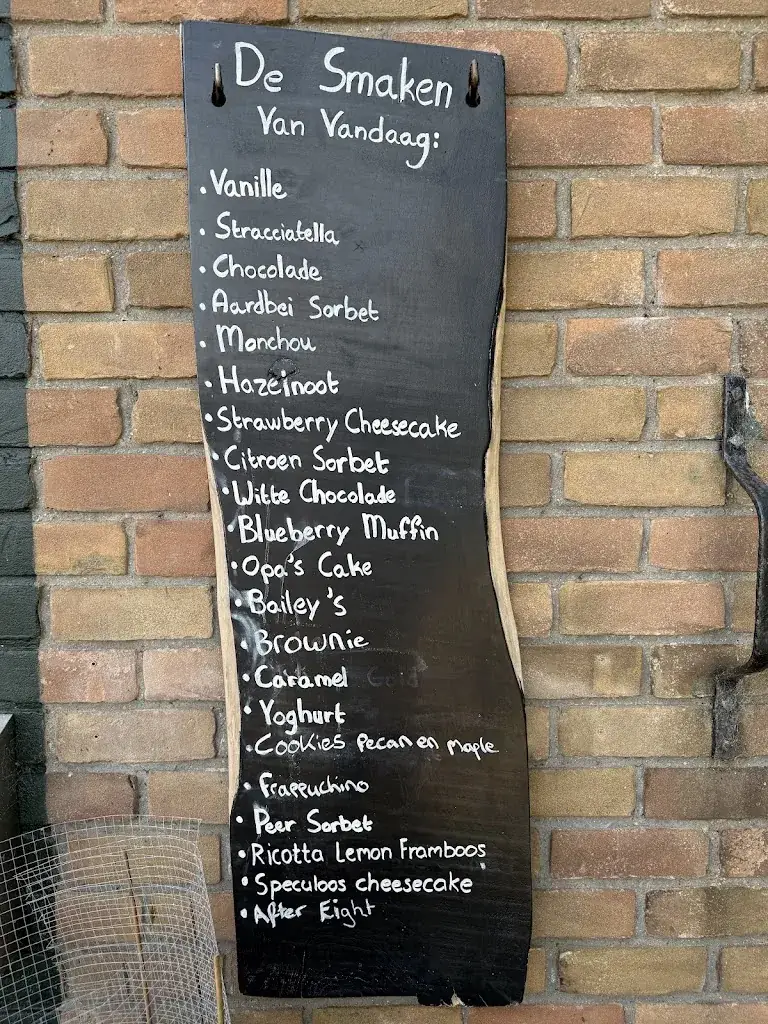 De Smaken
Van Vandaag:
• Vanille
• Stracciatella
• Chocolade
• Aardbei Sorbet
• Monchou
• Hazelnoot
• Strawberry Cheesecake
• Citroen Sorbet
• Witte Chocolade
• Blueberry Muffin
• Opa's Cake
• Bailey's
• Brownie
• Caramel
• Yoghurt
• Cookies Pecan en Maple
• Frappuchino
• Peer Sorbet
• Ricotta Lemon Framboos
• Speculoos cheesecake
• After Eight